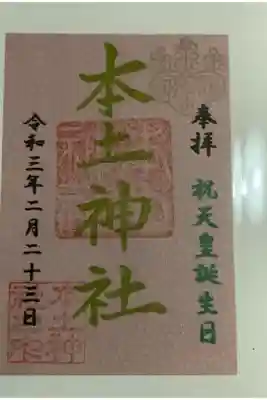 奉拝 祝天皇誕生日
本土神社
令和三年二月二十三日